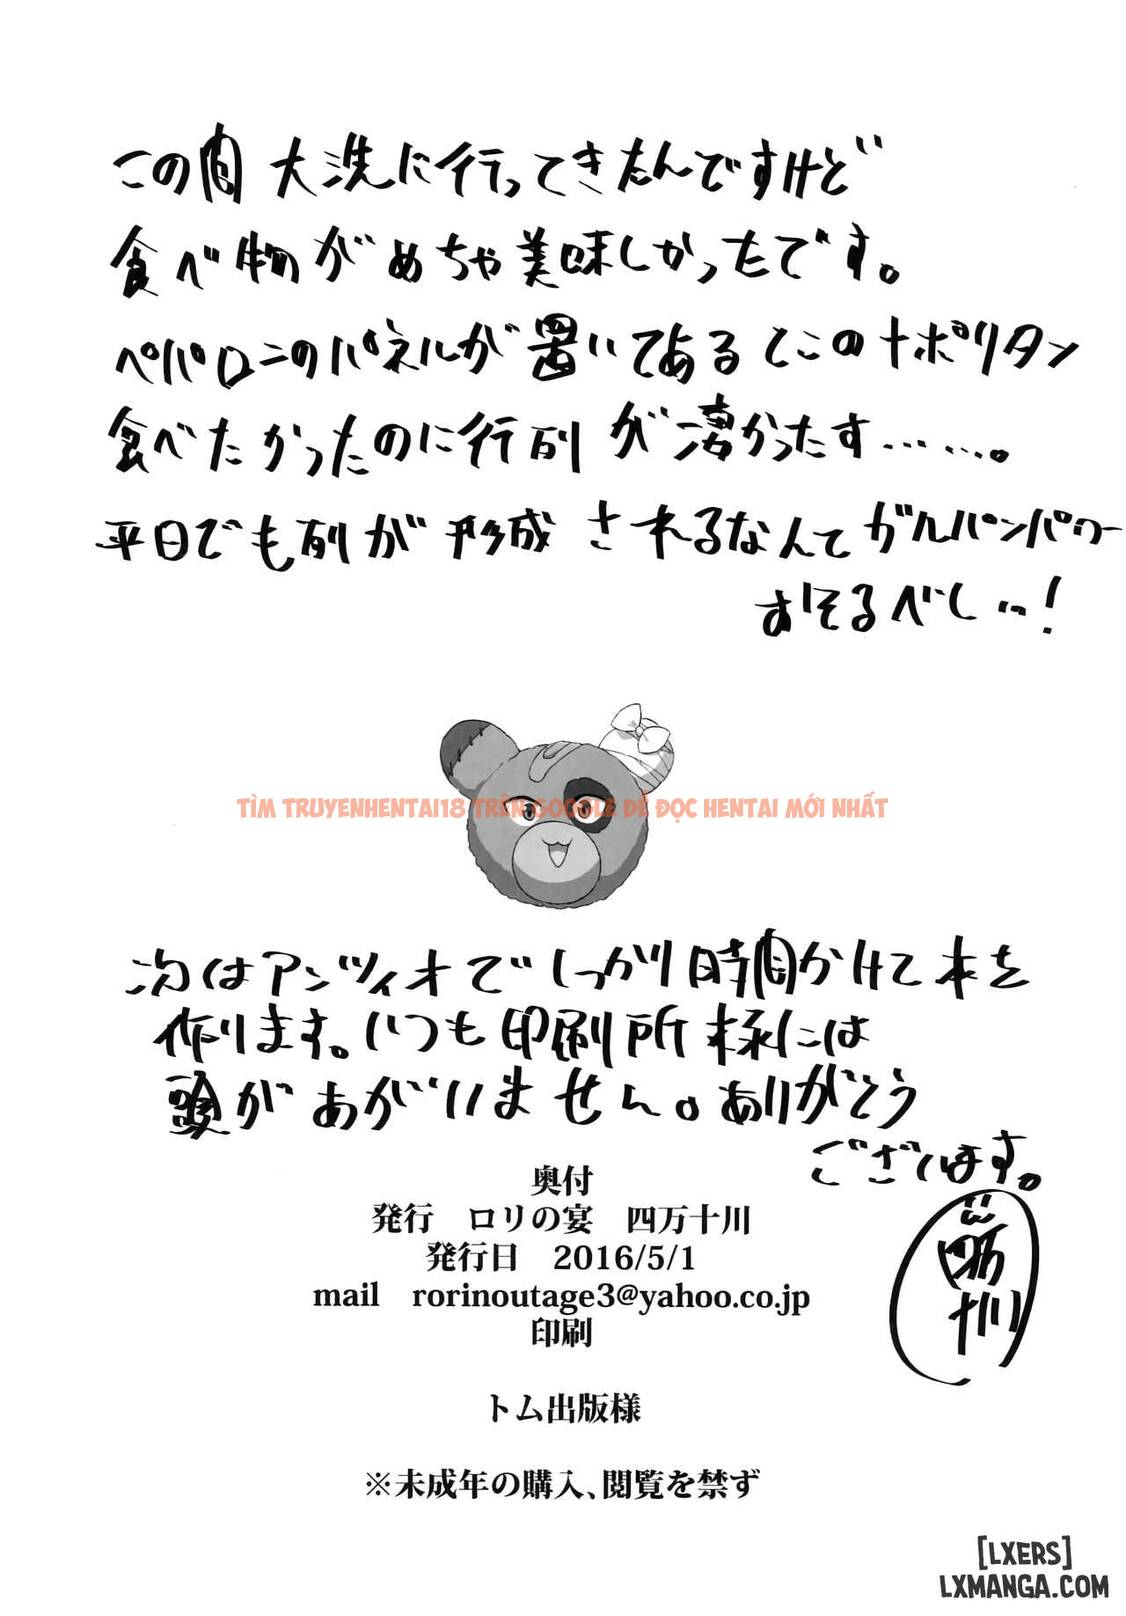 この間 大洗に行ってきたんですけど
食べ物がめちゃ美味しかったです。
ペパロニのパネルが置いてあるとこのナポリタン
食べたかったのに行列が凄かったす……。
平日でも列が形成されるなんてガルパンパワー
おそるべし…!
TÌM TRUYENHENTAI18 TRÊN GOOGLE ĐỂ ĐỌC HENTAI MỚI NHẤT
次はアンツィオでしっかり時間かけて本を
作ります。いつも印刷所様には
頭があがいません。ありがとう
ございます。
四万十川
奥付
発行 ロリの宴 四万十川
発行日 2016/5/1
mail rorinoutage3@yahoo.co.jp
印刷
トム出版様
※未成年の購入、閲覧を禁ず
[LXERS]
LXMANGA.COM